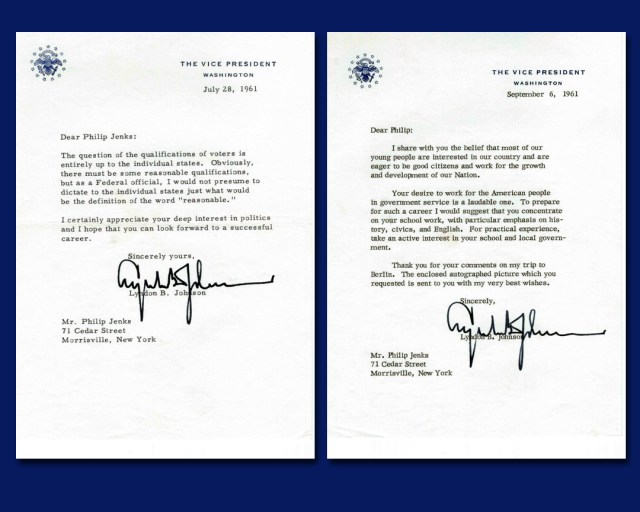 THE VICE PRESIDENT
WASHINGTON
July 28, 1961
Dear Philip Jenks:
The question of the qualifications of voters is
entirely up to the individual states. Obviously,
there must be some reasonable qualifications,
but as a Federal official, I would not presume to
dictate to the individual states just what would
be the definition of the word "reasonable."
I certainly appreciate your deep interest in politics
and I hope that you can look forward to a successful
career.
Sincerely yours,
Lyndon B. Johnson
Mr. Philip Jenks
71 Cedar Street
Morrisville, New York
THE VICE PRESIDENT
WASHINGTON
September 6, 1961
Dear Philip:
I share with you the belief that most of our
young people are interested in our country and are
eager to be good citizens and work for the growth
and development of our Nation.
Your desire to work for the American people
in government service is a laudable one. To prepare
for such a career I would suggest that you concentrate
on your school work, with particular emphasis on his-
tory, civics, and English. For practical experience,
take an active interest in your school and local govern-
ment.
Thank you for your comments on my trip to
Berlin. The enclosed autographed picture which you
requested is sent to you with my very best wishes.
Sincerely,
Lyndon B. Johnson
Mr. Philip Jenks
71 Cedar Street
Morrisville, New York